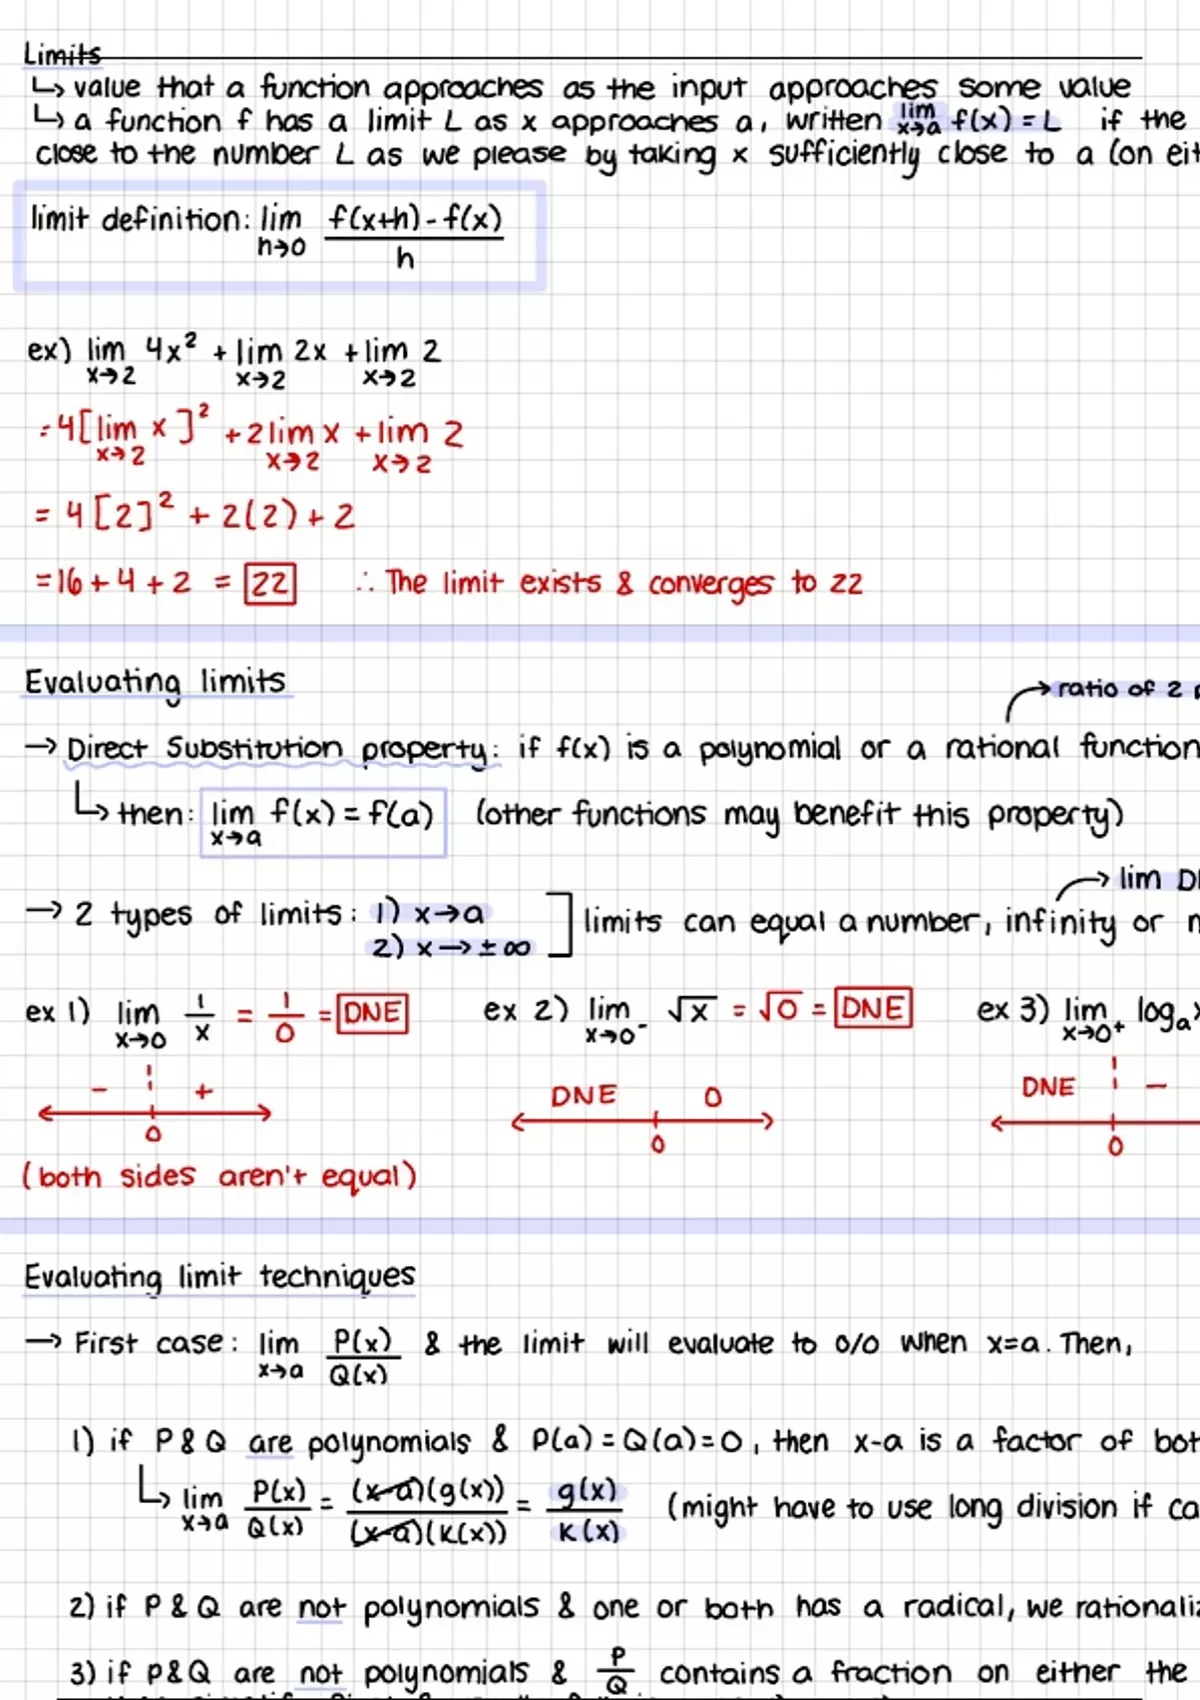 Limits
↳ value that a function approaches as the input approaches some value
↳ a function f has a limit L as x approaches a, written lim x→a f(x) = L if the
close to the number L as we please by taking x sufficiently close to a (on eit
limit definition: lim h→0 f(x+h) - f(x) / h
ex) lim x→2 4x² + lim x→2 2x + lim x→2 2
= 4[lim x→2 x]² + 2 lim x→2 x + lim x→2 2
= 4[2]² + 2(2) + 2
= 16 + 4 + 2 = 22 ∴ The limit exists & converges to 22
Evaluating limits
→ ratio of 2
→ Direct Substitution property: if f(x) is a polynomial or a rational function
↳ then: lim x→a f(x) = f(a) (other functions may benefit this property)
→ lim D
→ 2 types of limits: 1) x→a ] limits can equal a number, infinity or
2) x→ ± ∞
ex 1) lim x→0 1/x = 1/0 = DNE ex 2) lim x→0⁻ √x = √0 = DNE ex 3) lim x→0⁺ logₐx
- + DNE 0 DNE -
0 0 0
(both sides aren't equal)
Evaluating limit techniques
→ First case: lim x→a P(x)/Q(x) & the limit will evaluate to 0/0 when x=a. Then,
1) if P & Q are polynomials & P(a) = Q(a) = 0, then x-a is a factor of bot
↳ lim x→a P(x)/Q(x) = (x-a)(g(x))/(x-a)(k(x)) = g(x)/k(x) (might have to use long division if ca
2) if P & Q are not polynomials & one or both has a radical, we rationaliz
3) if P & Q are not polynomials & P/Q contains a fraction on either the